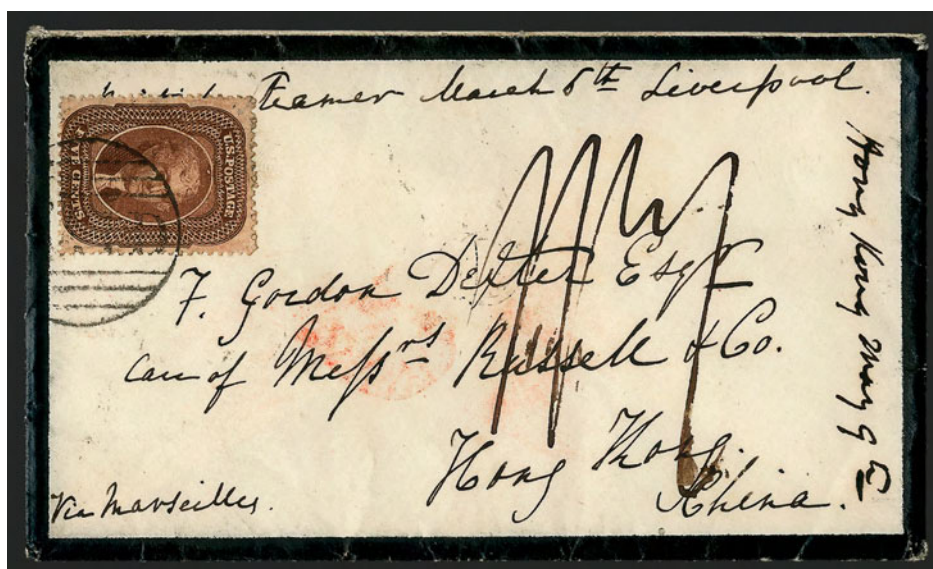 Steamer March 6th Liverpool.
U.S. POSTAGE
FIVE CENTS.
F. Gordon Dexter Esqr
Care of Messrs Russell & Co.
Hong Kong.
China.
Via Marseilles.
Hong Kong May 9